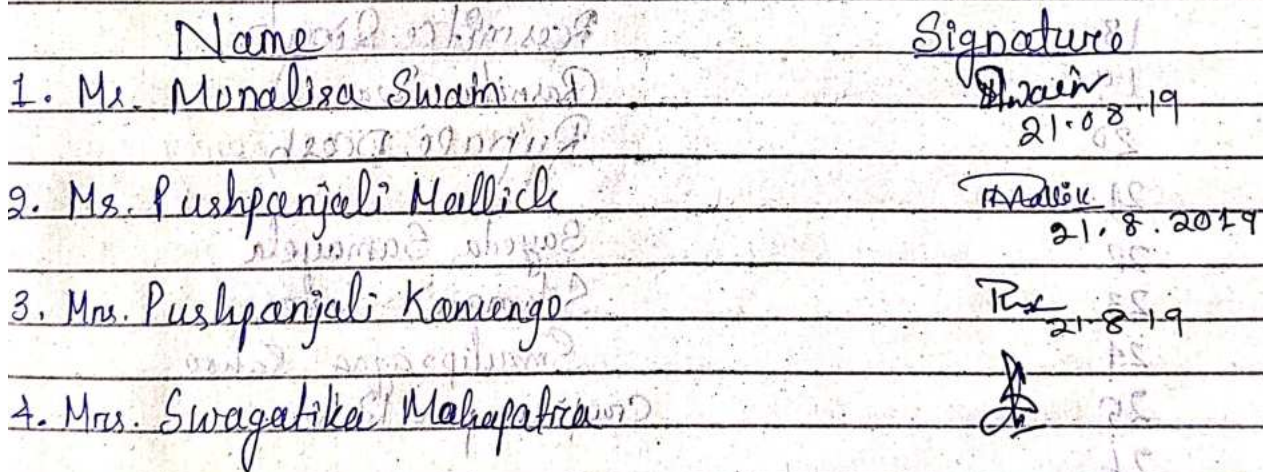 Name Signature
1. Ms. Monalisa Swain Swain
21.08.19
2. Ms. Pushpanjali Mallick Mallik
21.8.2019
3. Mrs. Pushpanjali Kamengo
21-8-19
4. Mrs. Swagatika Mahapatra